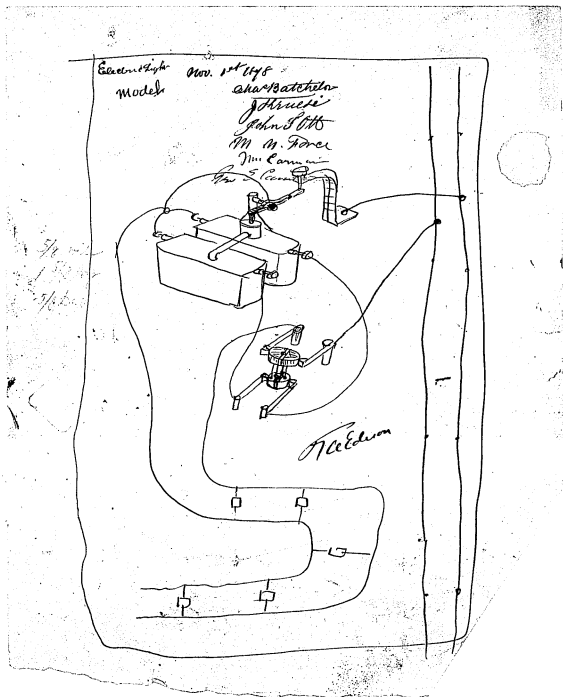 Electric Light
Models
Nov. 1st 1878
Chas Batchelor
J Kruesi
John F Ott
M. N. Force
Wm Carman
Geo S Carman
T A Edison
5/8
1